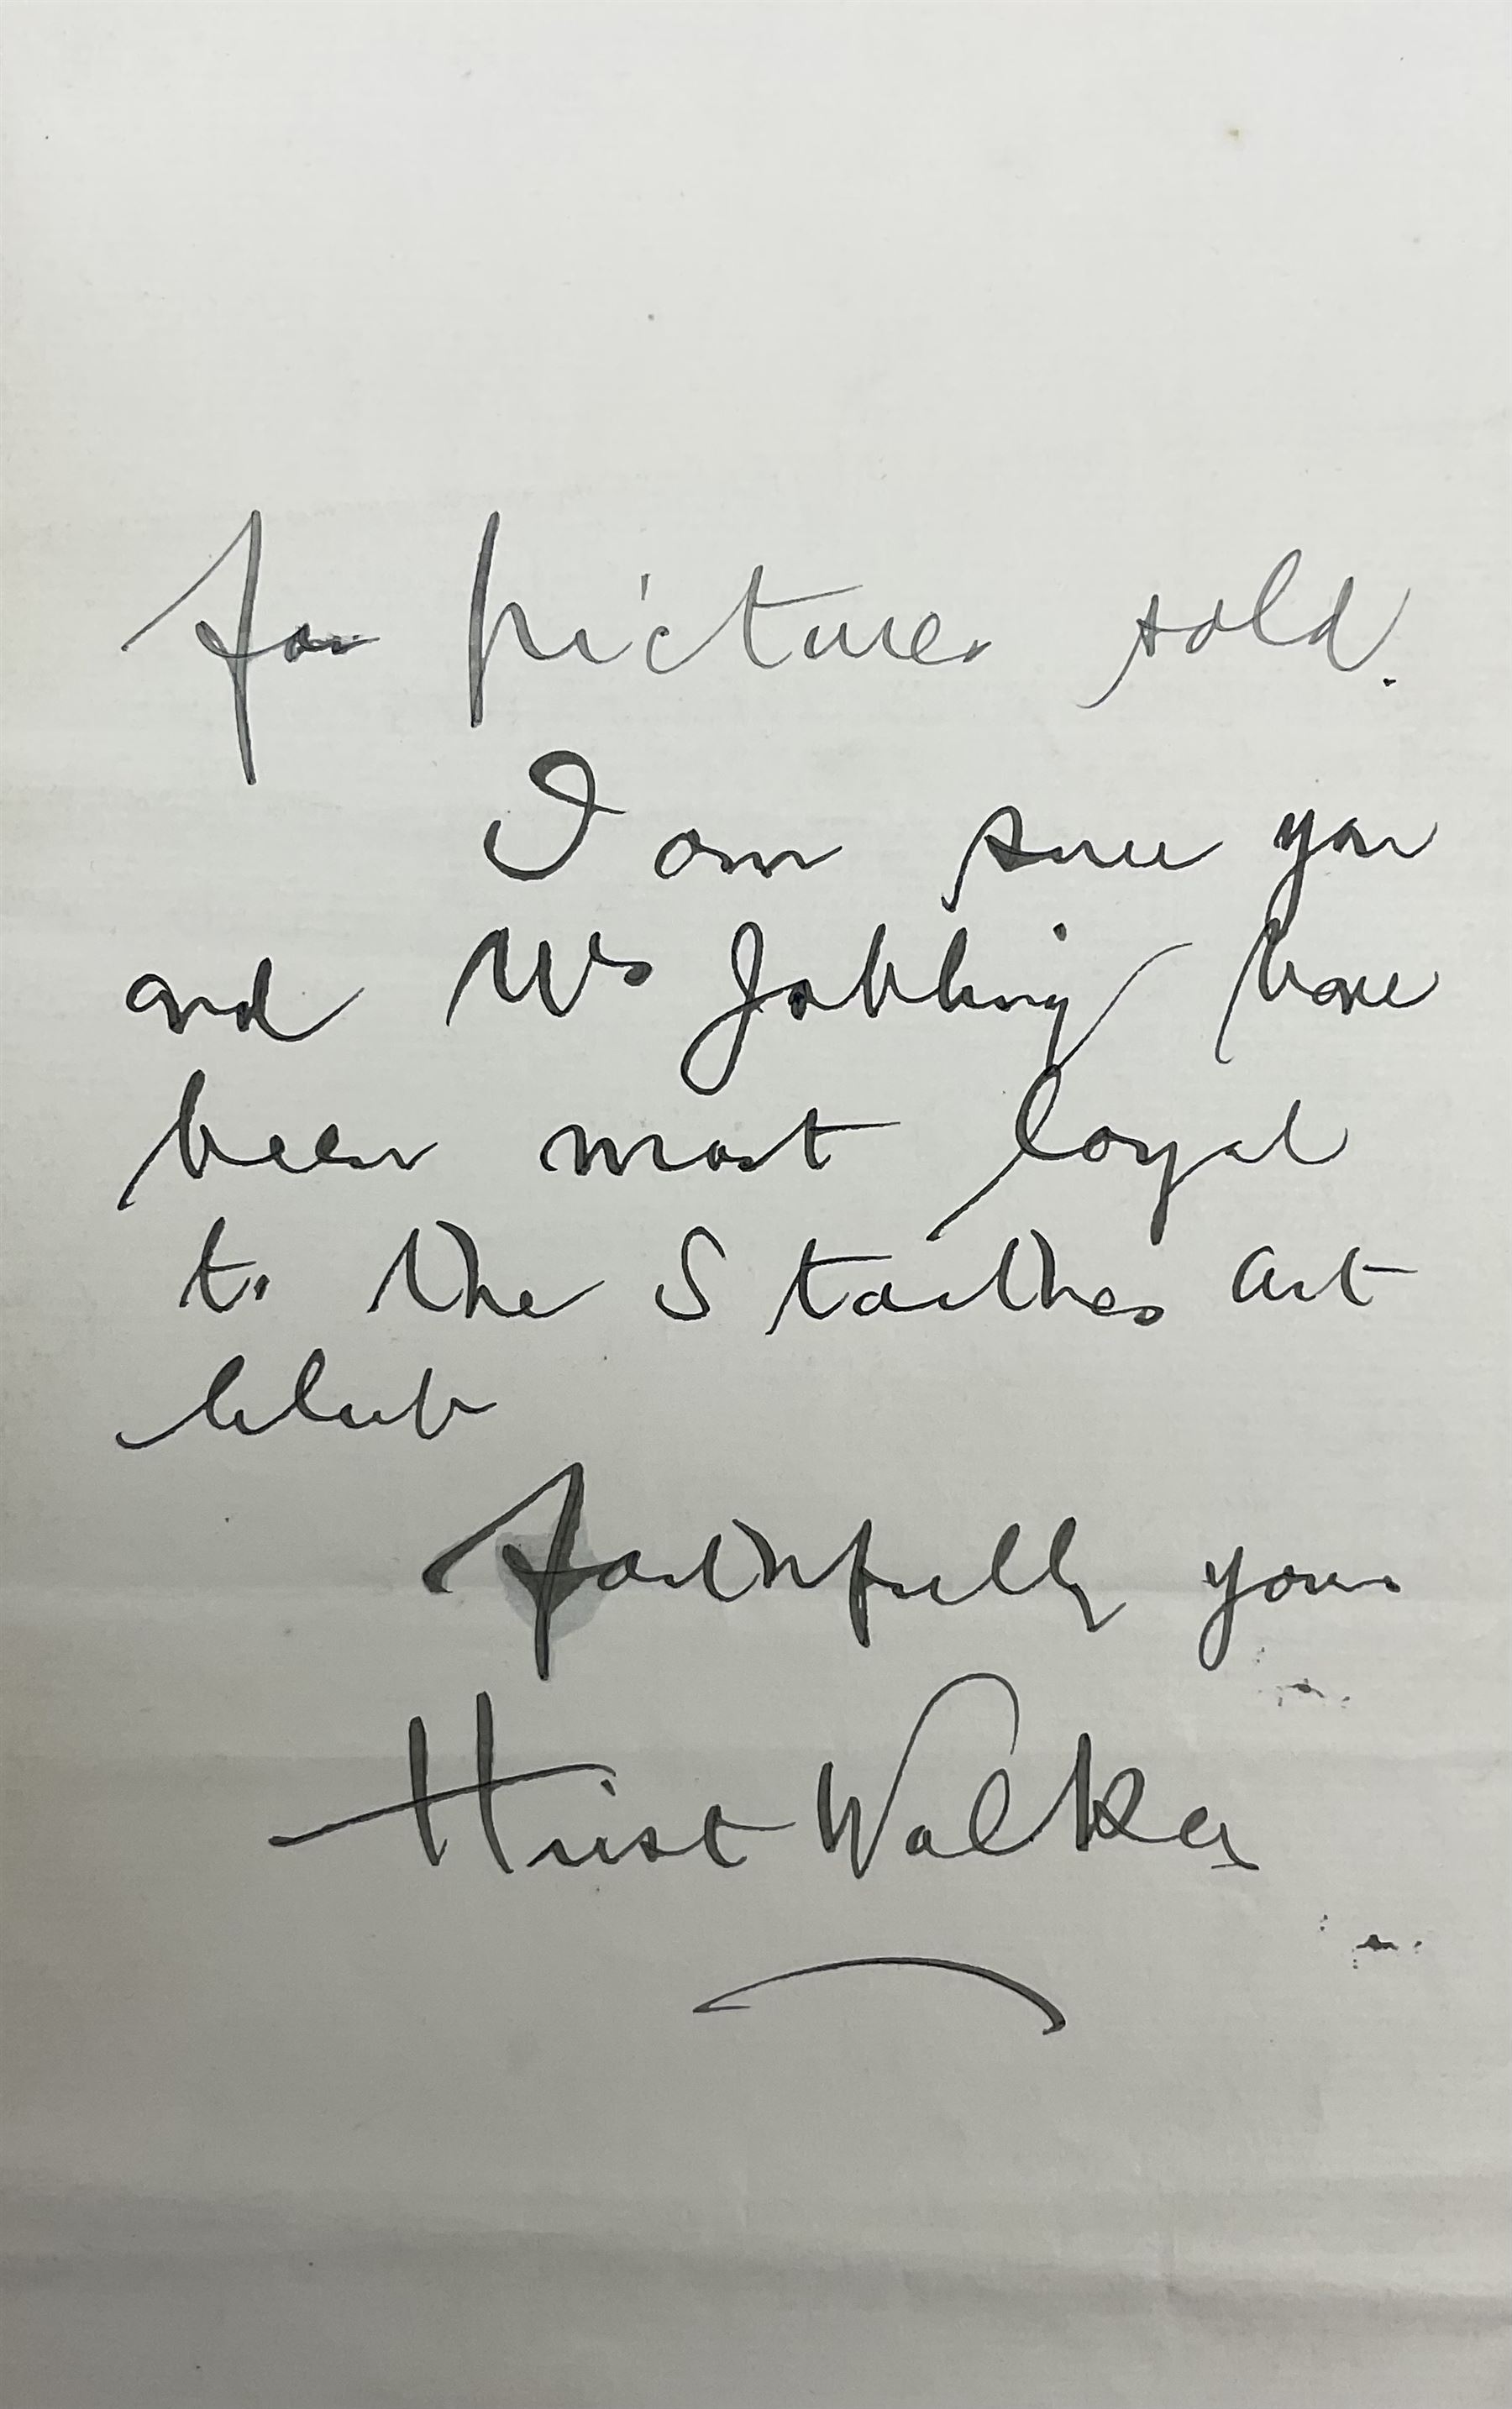 for pictures sold.
I am sure you
and Mrs Jobling have
been most loyal
to the Staithes Art
Club
Faithfully yours
Hirst Walker